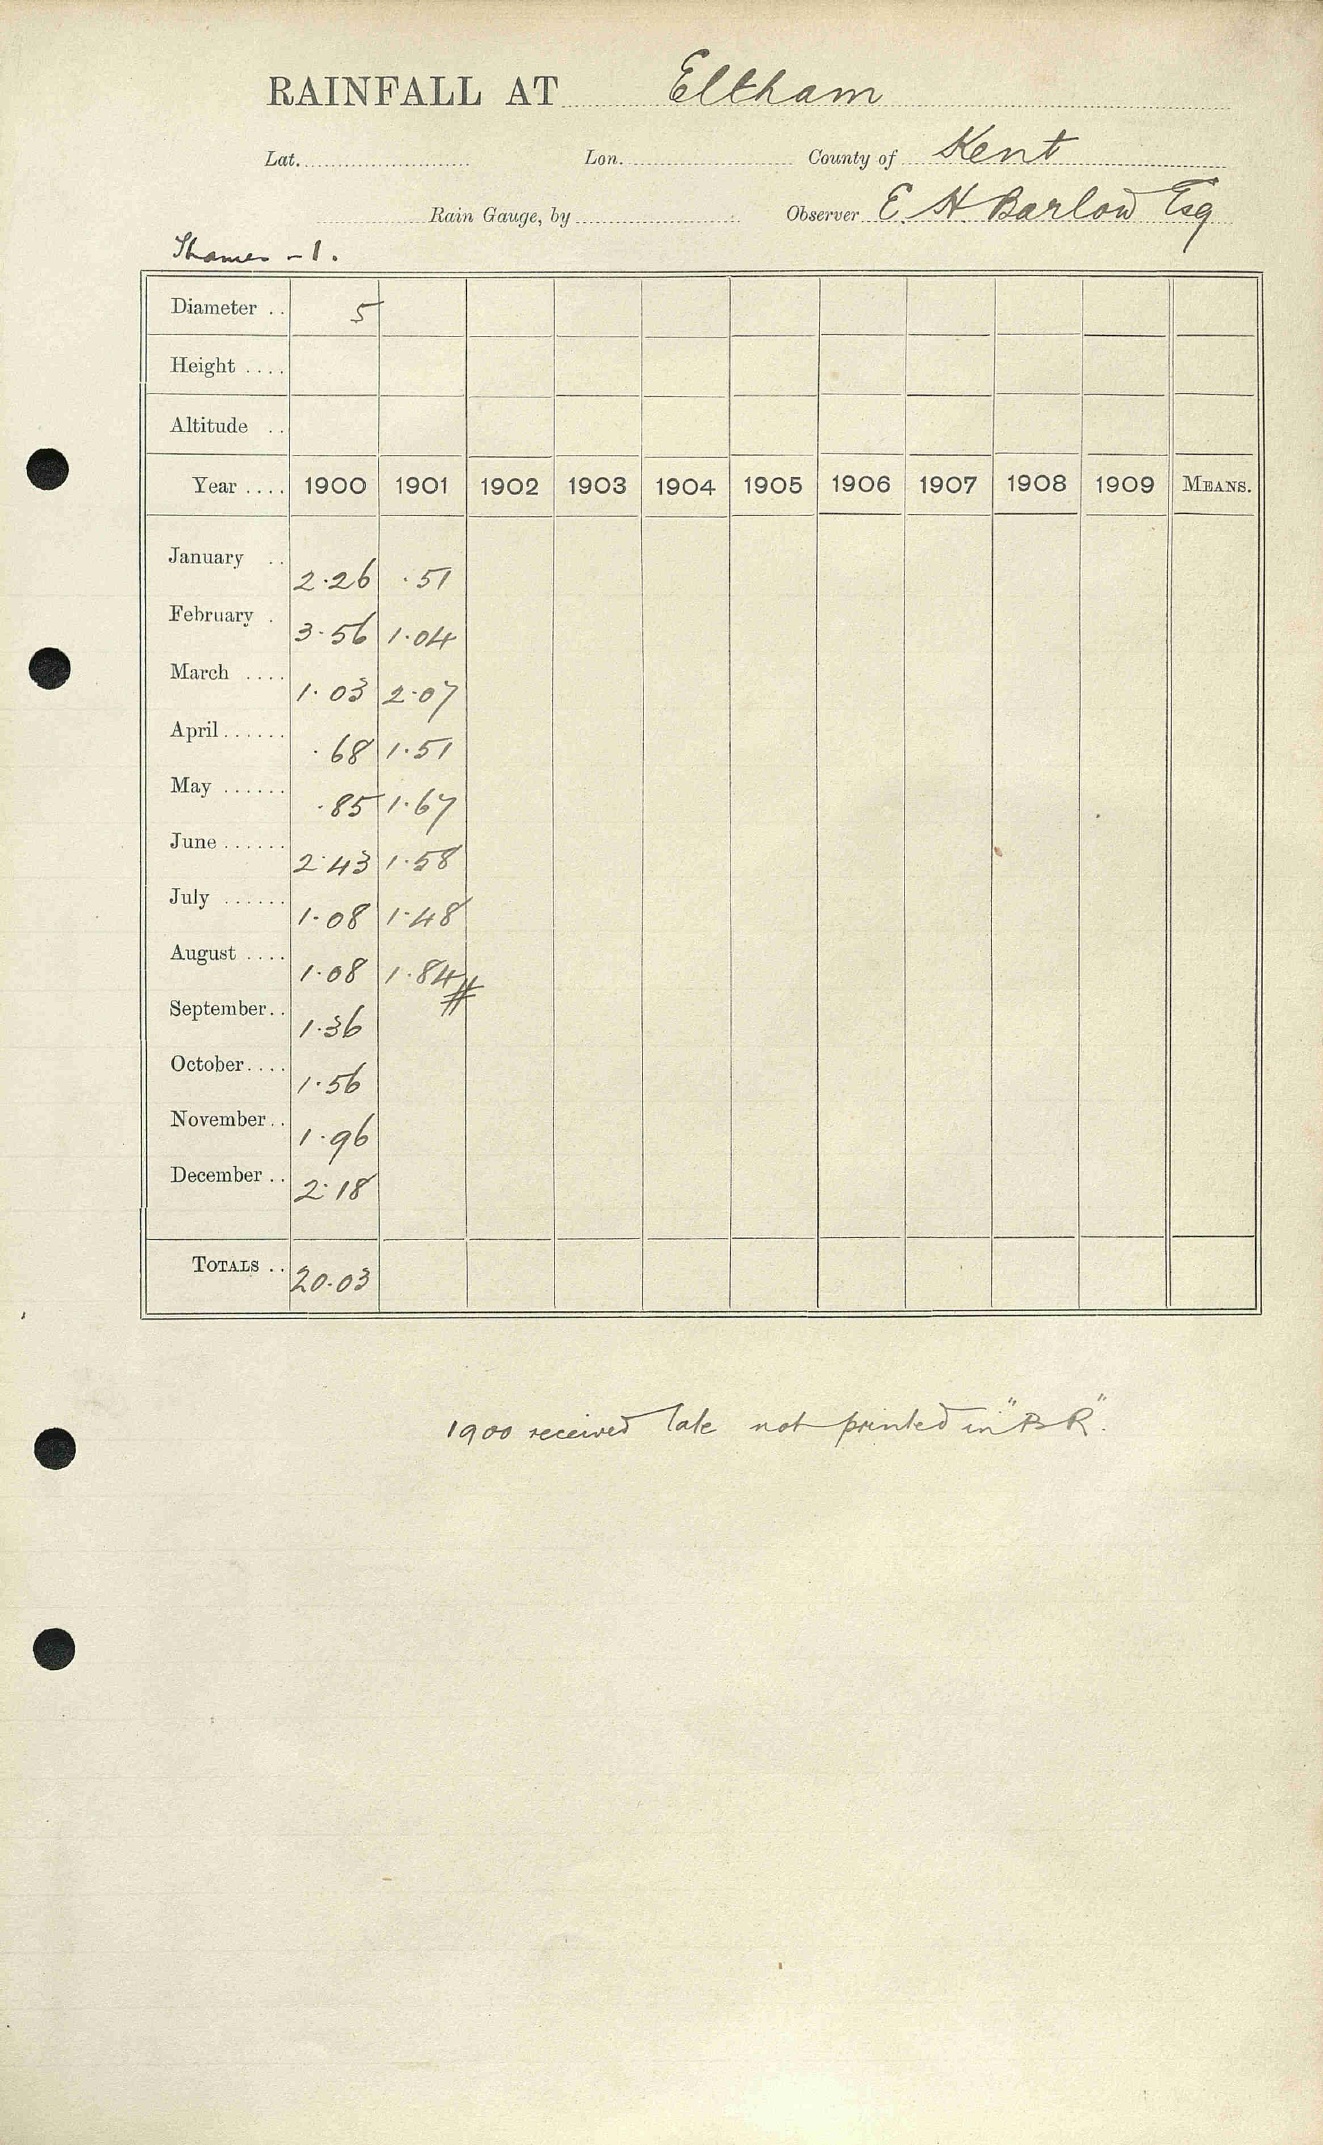 RAINFALL AT Eltham
Lat. Lon. County of Kent
Rain Gauge, by Observer E. H. Barlow Esq
Thames - 1.
Diameter .. 5
Height ....
Altitude ..
Year .... 1900 1901 1902 1903 1904 1905 1906 1907 1908 1909 MEANS.
January .. 2.26 .51
February . 3.56 1.04
March .... 1.03 2.07
April ...... .68 1.51
May ...... .85 1.67
June ...... 2.43 1.58
July ...... 1.08 1.48
August .... 1.08 1.84 #
September.. 1.36
October.... 1.56
November.. 1.96
December .. 2.18
TOTALS .. 20.03
1900 received late not printed in "BR".